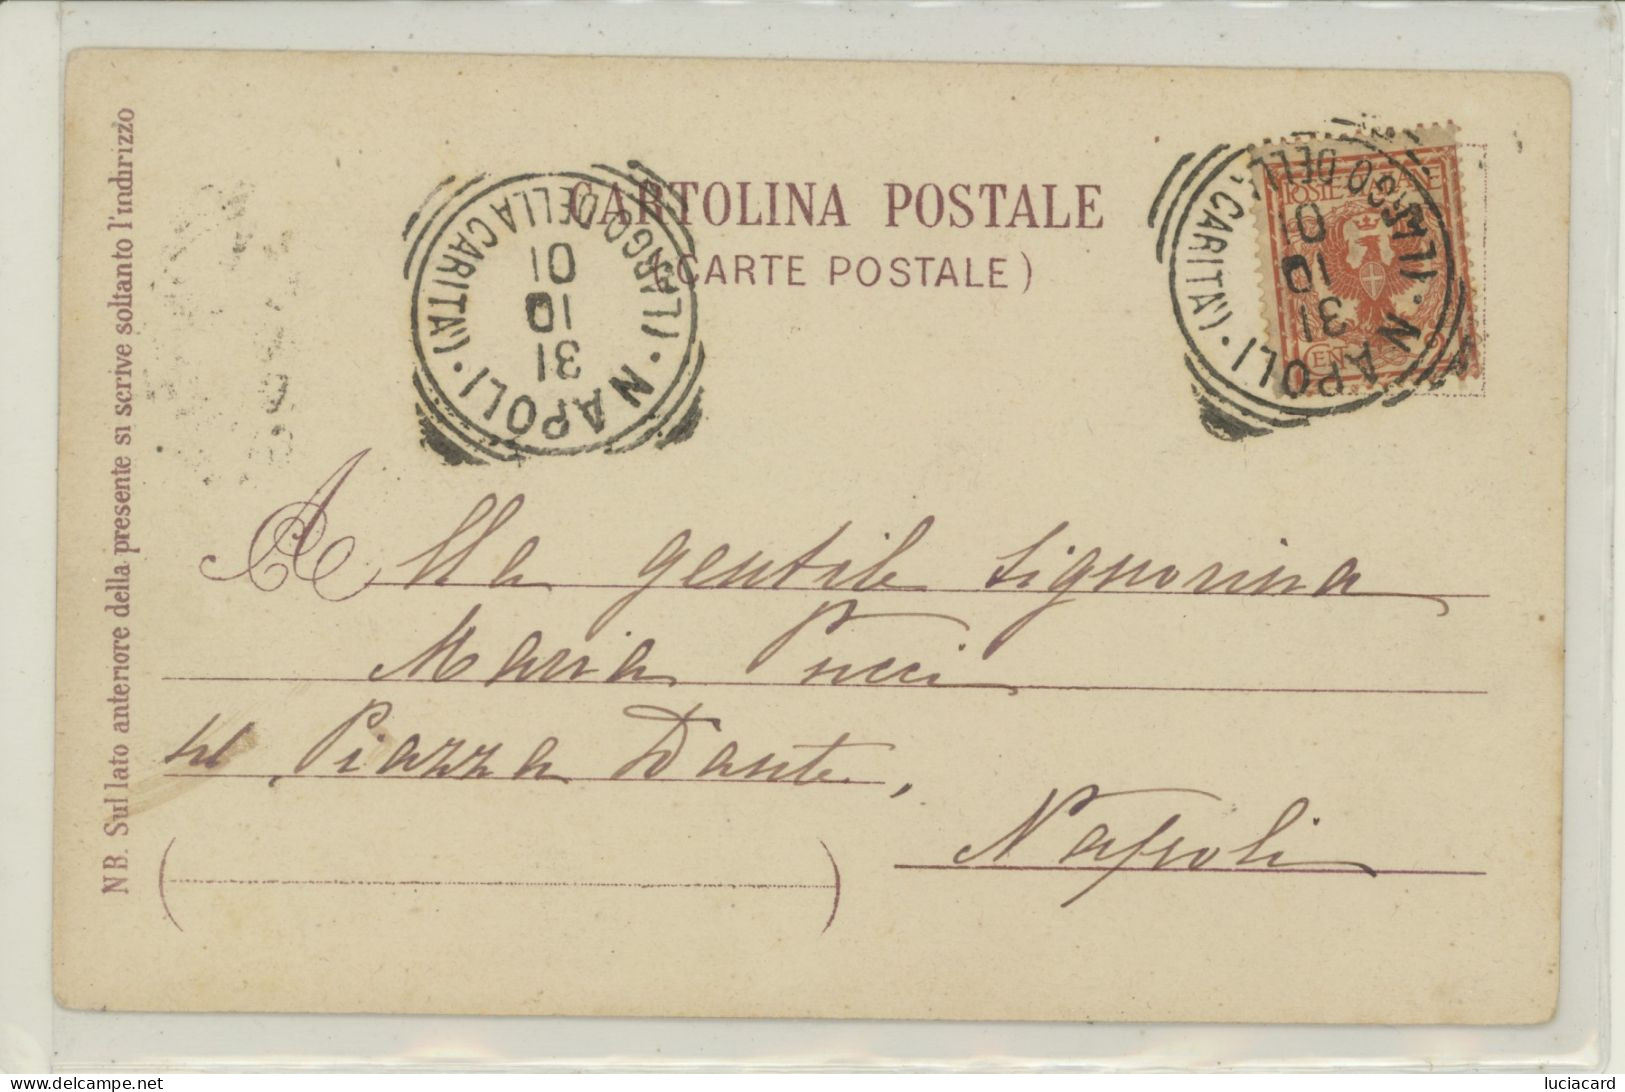 CARTOLINA POSTALE
(CARTE POSTALE)
NAPOLI
(LARGO DELLA CARITÀ)
31
10
01
NAPOLI
(LARGO DELLA CARITÀ)
31
10
01
POSTE ITALIANE
CENT 2
NB. Sul lato anteriore della presente si scrive soltanto l'indirizzo
Alla gentile signorina
Maria Pucci
Piazza Dante,
Napoli
luciacard